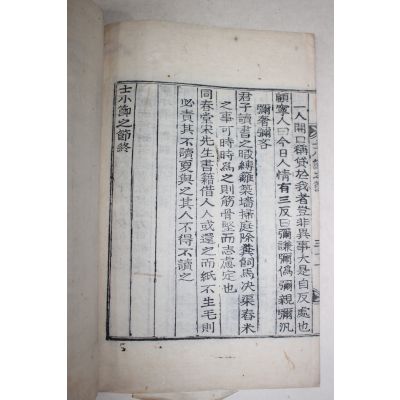 一人開口稱貸於我者豈非異事大是自反處也
顧家人曰今日人情有三反曰彌謙彌僞彌親彌汎
彌奢彌吝
君子讀書之暇縛籬築墻掃庭除糞飼馬決渠舂米
之事可時時爲之則筋骨堅而志慮定也
同春堂宋先生書籍借人人或還之而紙不生毛則
必責其不讀更與之其人不得不讀之
士小節之節終